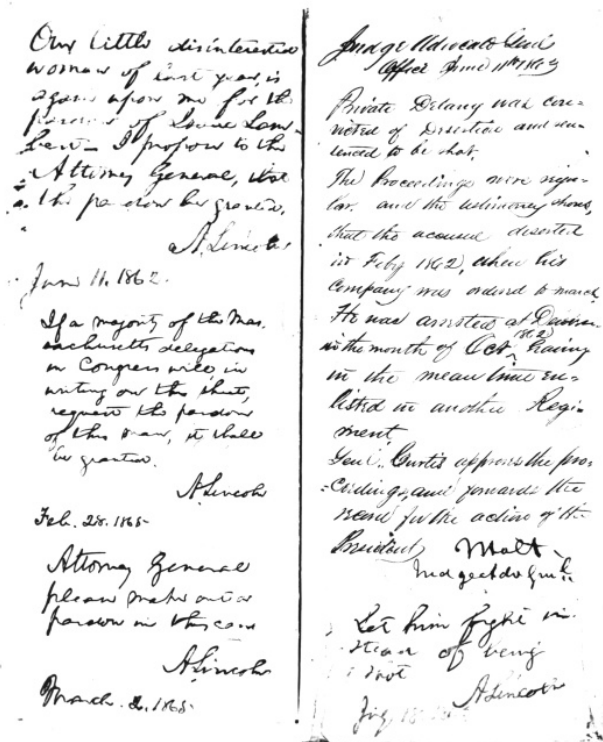 Our little disinterested
woman of last year, is
again upon me for the
pardon of Louie Lam-
bert — I propose to the
Attorney General, that
the pardon be granted.
A. Lincoln
June 11. 1862.
If a majority of the Mas.
sachusetts delegation
in Congress will, in
writing on this sheet,
request the pardon
of this man, it shall
be granted.
A. Lincoln
Feb. 28. 1865
Attorney General
please make out a
pardon in this case
A. Lincoln
March. 2. 1865.
Judge Advocate Genl
Office June 11th 1863
Private Delany was con-
victed of desertion and sen-
tenced to be shot.
The Proceedings were regu-
lar. and the testimony shows,
that the accused deserted
in Feby 1862, when his
Company was ordered to march
He was arrested at
in the month of Oct, 1862 having
in the mean time en-
listed in another Regi-
ment.
Genl. Curtis approves the pro-
ceedings, and forwards the
record for the action of the
President
Holt
Judge Adv Genl.
Let him fight in-
stead of being
shot
A. Lincoln